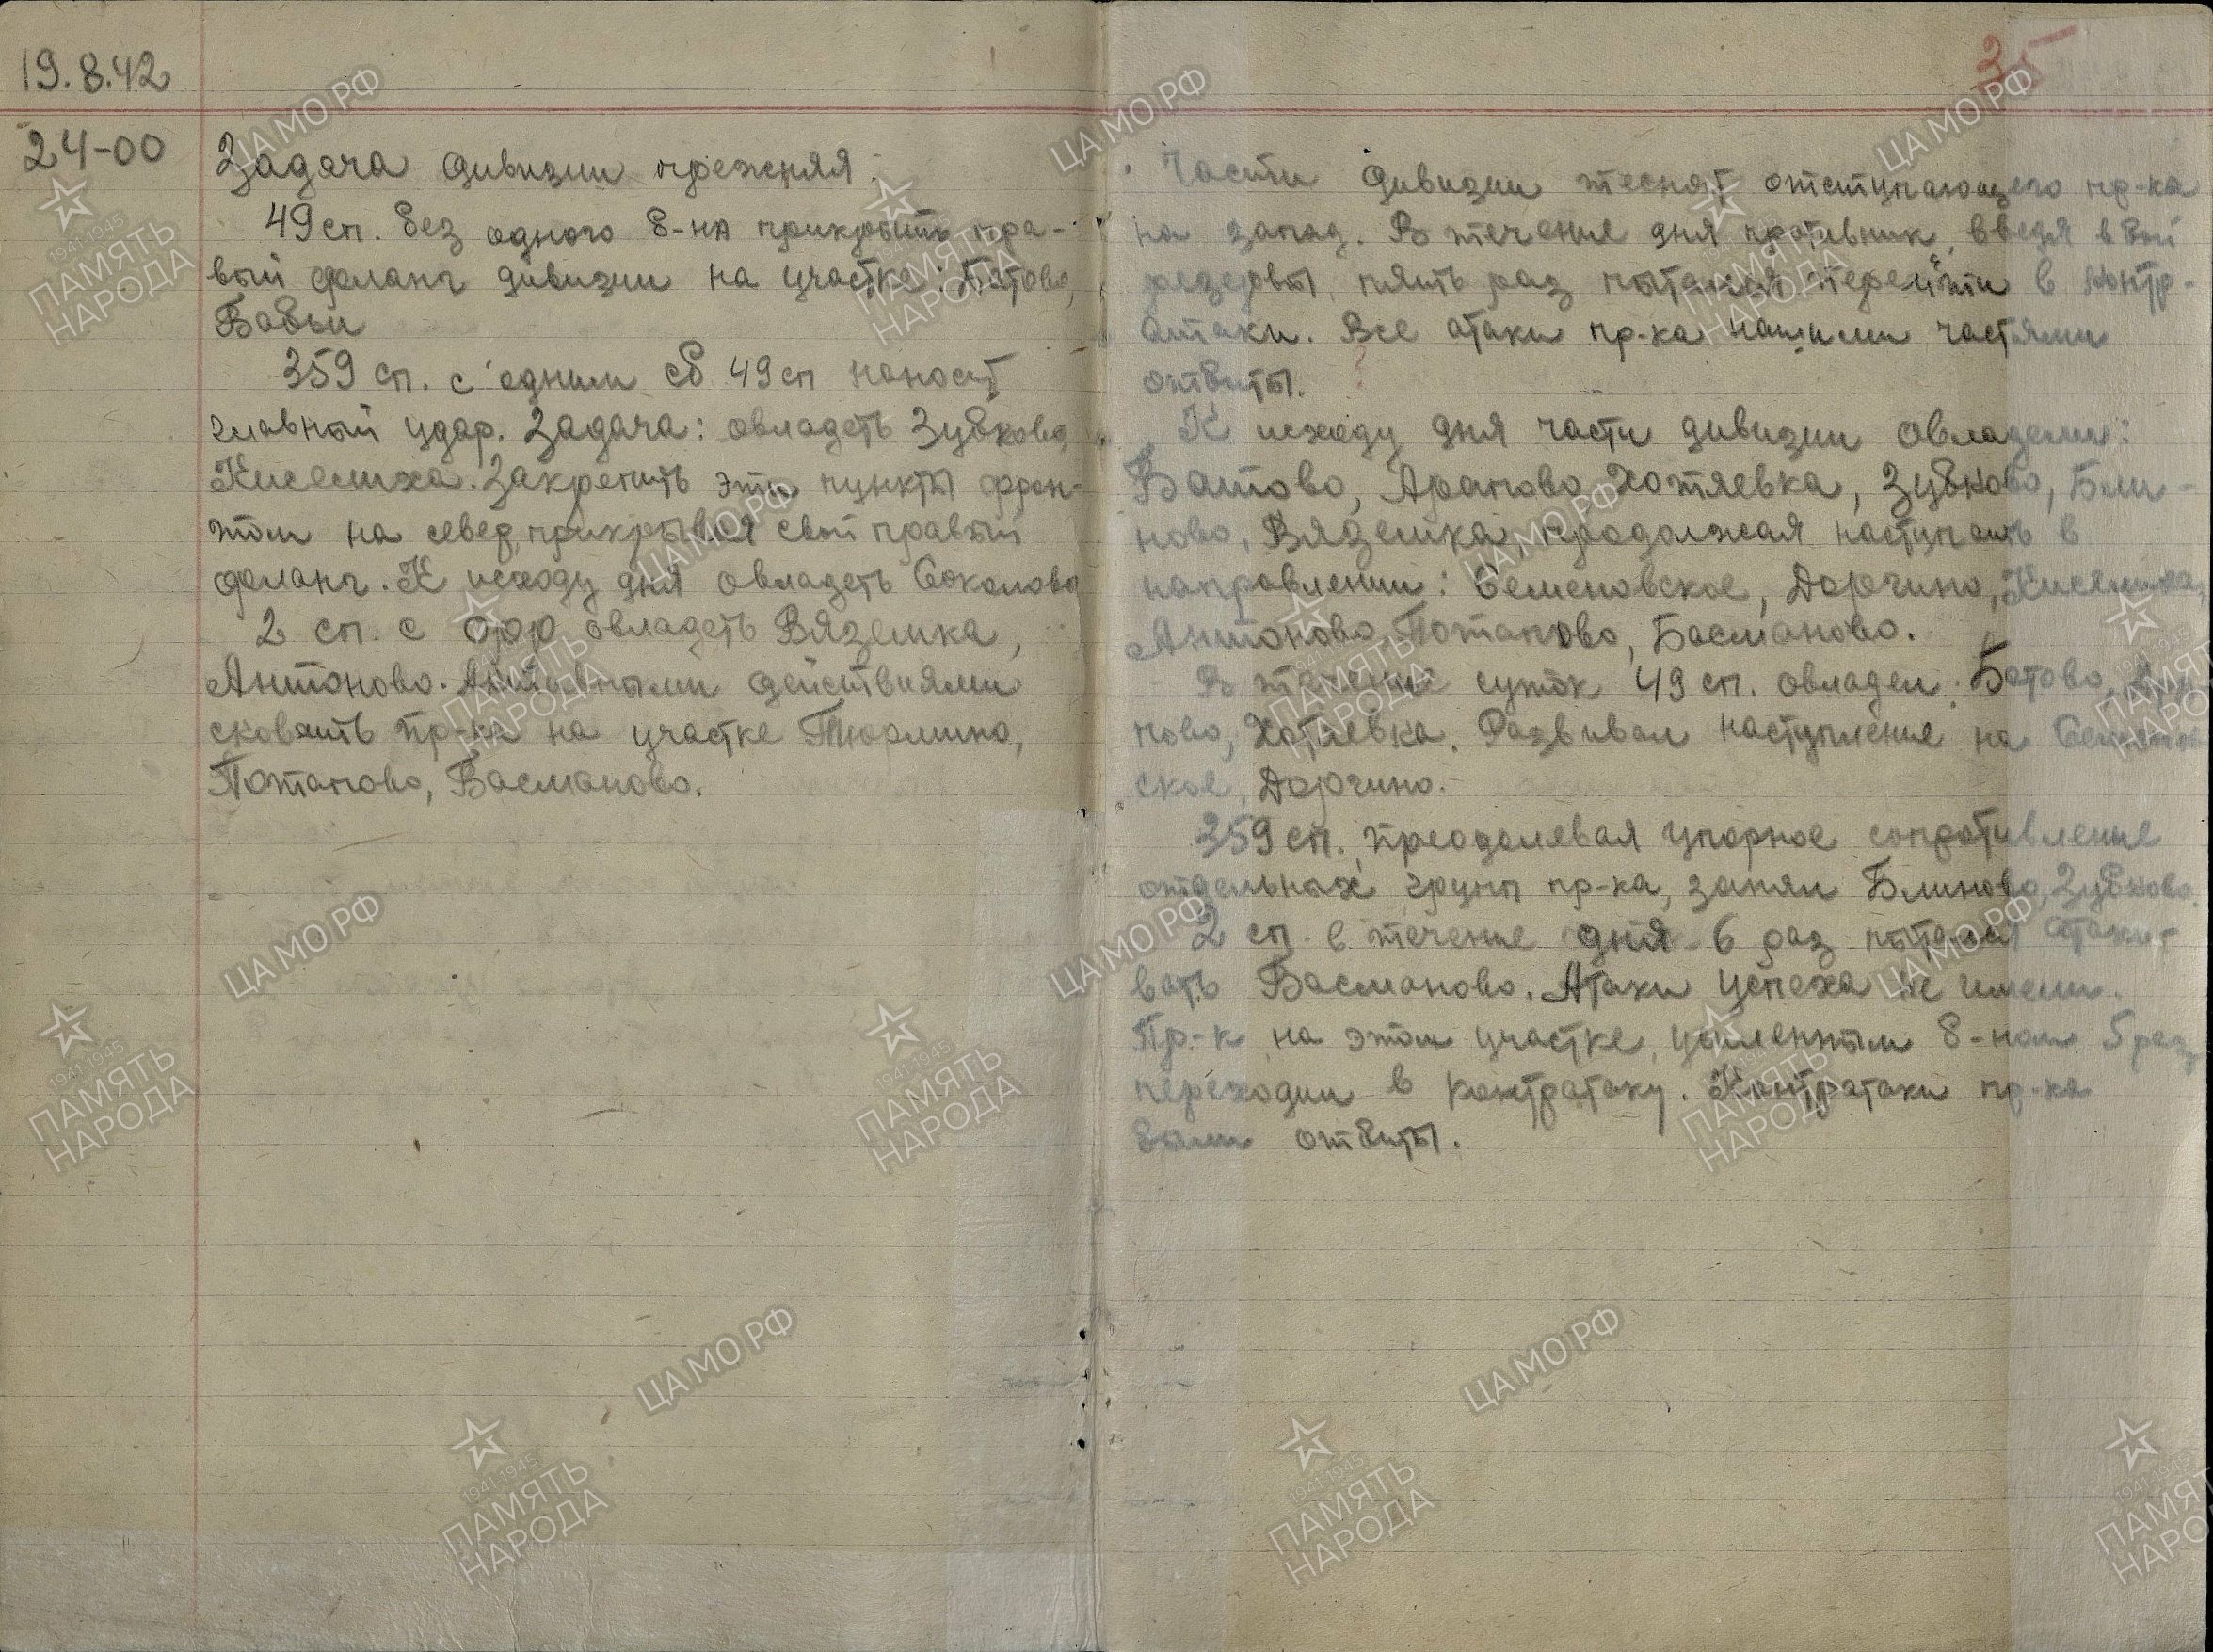 19.8.42
24-00
Задача дивизии прежняя.
49 сп. без одного б-на прикрывать пра-
вый фланг дивизии на участке: Батово,
Бабьи
359 сп. с одним сб 49 сп наносит
главный удар. Задача: овладеть Зубково,
Киселиха. Закрепить эти пункты фрон-
том на север, прикрывая свой правый
фланг. К исходу дня овладеть Соколово
2 сп. с орр овладеть Вяземка,
Антоново. Активными действиями
сковать пр-ка на участке Тюрмино,
Потапово, Басманово.
35
Части дивизии теснят отступающего пр-ка
на запад. В течение дня противник, введя в бой
резервы, пять раз пытался перейти в контр-
атаки. Все атаки пр-ка нашими частями
отбиты.
К исходу дня части дивизии овладели:
Батово, Арапово, Хотяевка, Зубково, Бли-
ново, Вяземка, продолжая наступать в
направлении: Семеновское, Дорчино, Киселиха,
Антоново, Потапово, Басманово.
В течение суток 49 сп. овладел: Батово, Ара-
пово, Хотяевка. Развивал наступление на Семенов
ское, Дорчино.
359 сп., преодолевая упорное сопротивление
отдельных групп пр-ка, занял Блиново, Зубково.
2 сп. в течение дня 6 раз пытался атако-
вать Басманово. Атаки успеха не имели.
Пр-к на этом участке, усиленным б-ном 5 раз
переходил в контратаку. Контратаки пр-ка
были отбиты.
ЦАМО.РФ
1941-1945
ПАМЯТЬ
НАРОДА